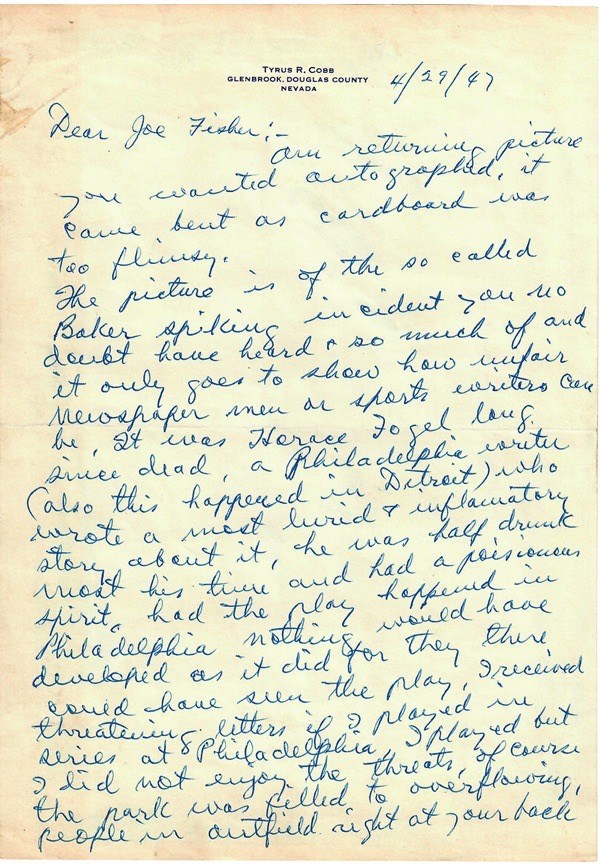 TYRUS R. COBB
GLENBROOK, DOUGLAS COUNTY
NEVADA
4/29/47
Dear Joe Fisher:-
Am returning picture
you wanted autographed, it
came bent as cardboard was
too flimsy.
The picture is of the so called
Baker spiking incident you no
doubt have heard & so much of and
it only goes to show how unfair
newspaper men or sports writers can
be, It was Horace Fogel long
since dead, a Philadelphia writer
(also this happened in Detroit) who
wrote a most lurid & inflamatory
story about it, he was half drunk
most his time and had a poisionous
spirit, had the play happened in
Philadelphia nothing would have
developed as it did for they there
could have seen the play, I received
threatening letters if I played in
series at Philadelphia, I played but
I did not enjoy the threats, of course
the park was filled to overflowing,
people in outfield right at your back